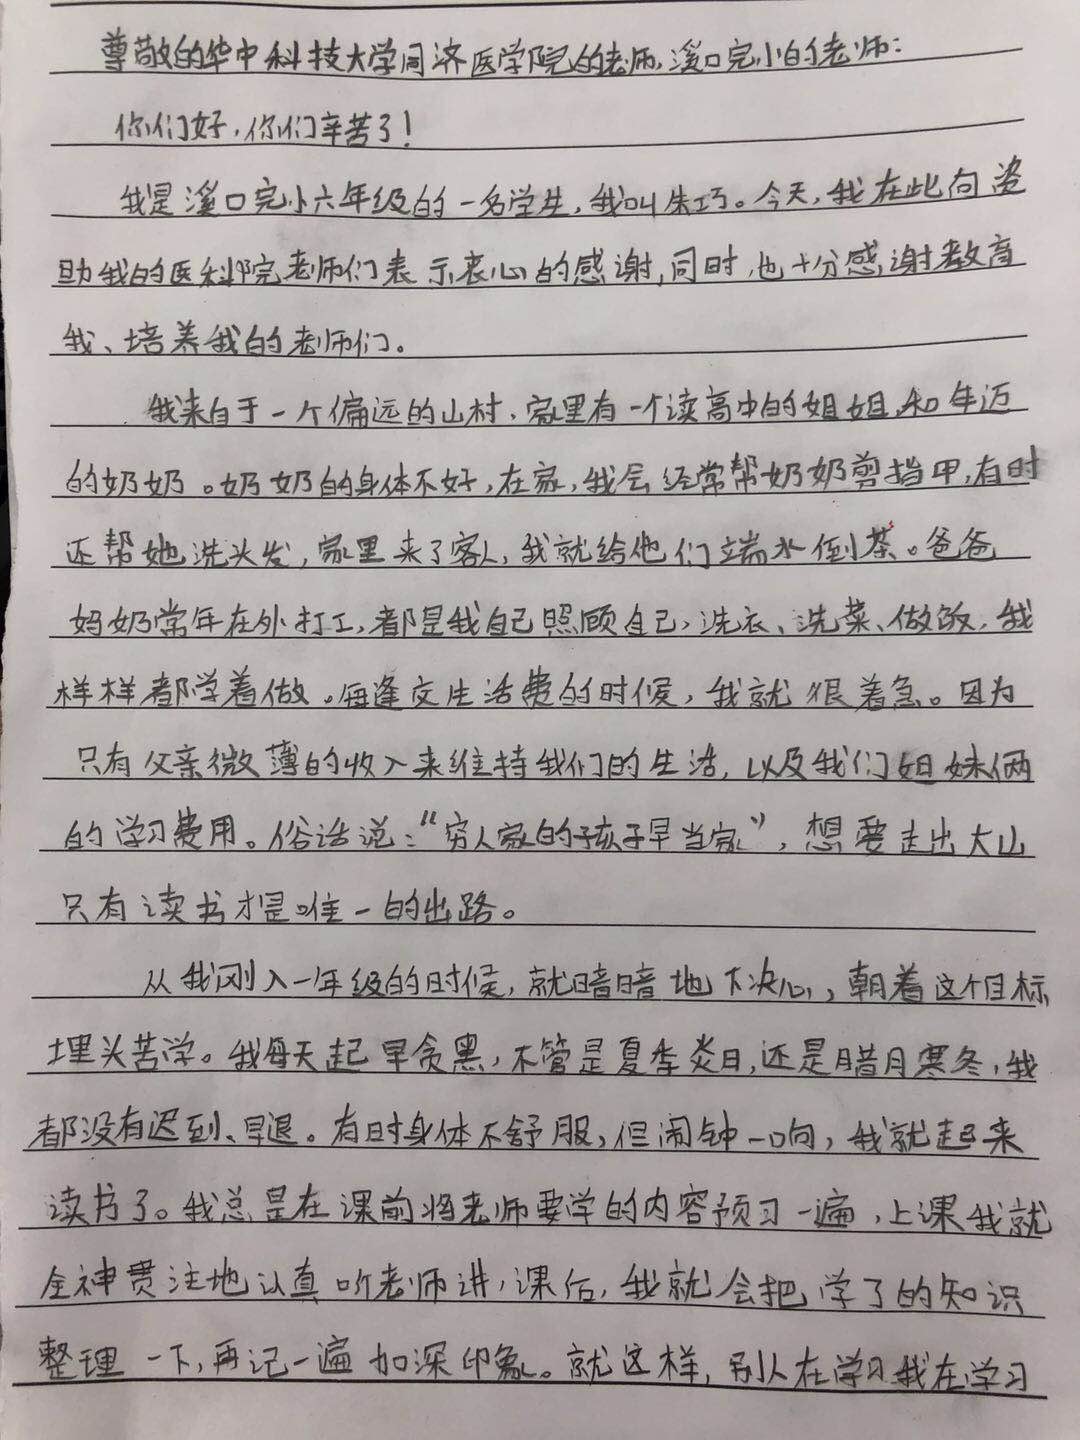 尊敬的华中科技大学同济医学院的老师,溪口完小的老师:
你们好,你们辛苦了!
我是溪口完小六年级的一名学生,我叫朱巧。今天,我在此向资
助我的医科院老师们表示衷心的感谢,同时,也十分感谢教育
我、培养我的老师们。
我来自于一个偏远的山村,家里有一个读高中的姐姐和年迈
的奶奶。奶奶的身体不好,在家,我会经常帮奶奶剪指甲,有时
还帮她洗头发,家里来了客人,我就给他们端水倒茶。爸爸
妈奶常年在外打工,都是我自己照顾自己,洗衣、洗菜、做饭,我
样样都学着做。每逢交生活费的时候,我就很着急。因为
只有父亲微薄的收入来维持我们的生活,以及我们姐妹俩
的学习费用。俗话说:“穷人家的孩子早当家”,想要走出大山
只有读书才是唯一的出路。
从我刚入一年级的时候,就暗暗地下决心,朝着这个目标
埋头苦学。我每天起早贪黑,不管是夏季炎日,还是腊月寒冬,我
都没有迟到、早退。有时身体不舒服,但闹钟一响,我就起来
读书了。我总是在课前将老师要学的内容预习一遍,上课我就
全神贯注地认真听老师讲,课后,我就会把学了的知识
整理一下,再记一遍加深印象。就这样,别人在学习我在学习